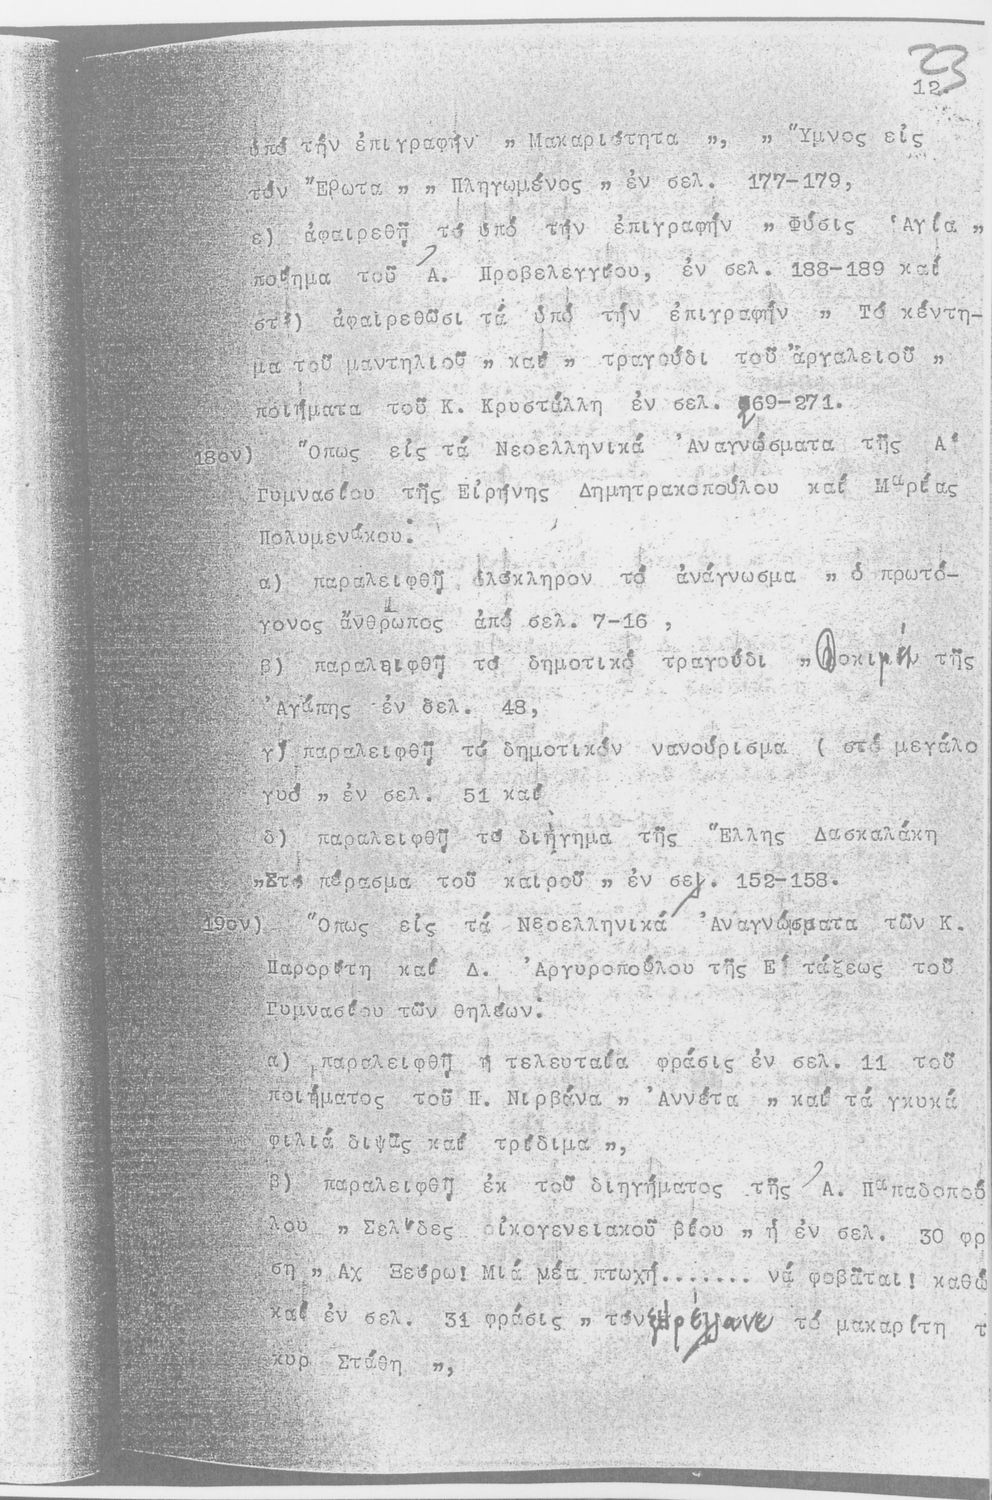 23
12.
ὑπό τήν ἐπιγραφήν „ Μακαριότητα „, „ Ὕμνος εἰς
τόν Ἔρωτα „ „ Πληγωμένος „ ἐν σελ. 177-179,
ε) ἀφαιρεθῇ τό ὑπό τήν ἐπιγραφήν „ Φύσις Ἁγία „
ποίημα τοῦ Ἀ. Προβελεγγίου, ἐν σελ. 188-189 καί
στ΄) ἀφαιρεθῶσι τά ὑπό τήν ἐπιγραφήν „ Τό κέντη-
μα τοῦ μαντηλιοῦ „ καί „ τραγούδι τοῦ ἀργαλειοῦ „
ποιήματα τοῦ Κ. Κρυστάλλη ἐν σελ. 269-271.
18ον) Ὅπως εἰς τά Νεοελληνικά Ἀναγνώσματα τῆς Α΄
Γυμνασίου τῆς Εἰρήνης Δημητρακοπούλου καί Μαρίας
Πολυμενάκου:
α) παραλειφθῇ ὁλόκληρον τό ἀνάγνωσμα „ ὁ πρωτό-
γονος ἄνθρωπος ἀπό σελ. 7-16 ,
β) παραλειφθῇ τό δημοτικό τραγούδι „ Δοκιμήν τῆς
Ἀγάπης ἐν δελ. 48,
γ) παραλειφθῇ τό δημοτικόν νανούρισμα ( στό μεγάλο
γυό „ ἐν σελ. 51 καί
δ) παραλειφθῇ τό διήγημα τῆς Ἕλλης Δασκαλάκη
„Στό πέρασμα τοῦ καιροῦ „ ἐν σελ. 152-158.
19ον) Ὅπως εἰς τά Νεοελληνικά Ἀναγνώσματα τῶν Κ.
Παρορίτη καί Δ. Ἀργυροπούλου τῆς Ε΄ τάξεως τοῦ
Γυμνασίου τῶν θηλέων:
α) παραλειφθῇ ἡ τελευταία φράσις ἐν σελ. 11 τοῦ
ποιήματος τοῦ Π. Νιρβάνα „ Ἀννέτα „ καί τά γκυκά
φιλιά διψᾶς καί τρέδιμα „,
β) παραλειφθῇ ἐκ τοῦ διηγήματος τῆς Ἀ. Παπαδοπού
λου „ Σελίδες οἰκογενειακοῦ βίου „ ἡ ἐν σελ. 30 φρ
ση „ Αχ Ξεύρω! Μιά μέα πτωχή....... νά φοβᾶται! καθώ
καί ἐν σελ. 31 φράσις „ τόν τό μακαρίτη τ
κυρ Στάθη „,